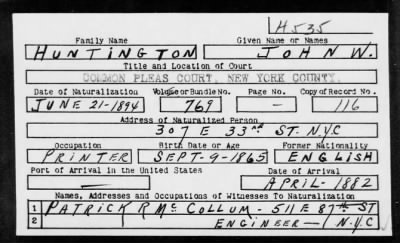 H535
Family Name Given Name or Names
HUNTINGTON JOHN W.
Title and Location of Court
COMMON PLEAS COURT, NEW YORK COUNTY.
Date of Naturalization Volume or Bundle No. Page No. Copy of Record No.
JUNE 21-1894 769 — 116
Address of Naturalized Person
307 E 33RD ST. N.Y.C
Occupation Birth Date or Age Former Nationality
PRINTER SEPT-9-1865 ENGLISH
Port of Arrival in the United States Date of Arrival
— APRIL-1882
Names, Addresses and Occupations of Witnesses To Naturalization
1 PATRICK R MCCOLLUM - 511 E 87TH ST
2 ENGINEER — N.Y.C